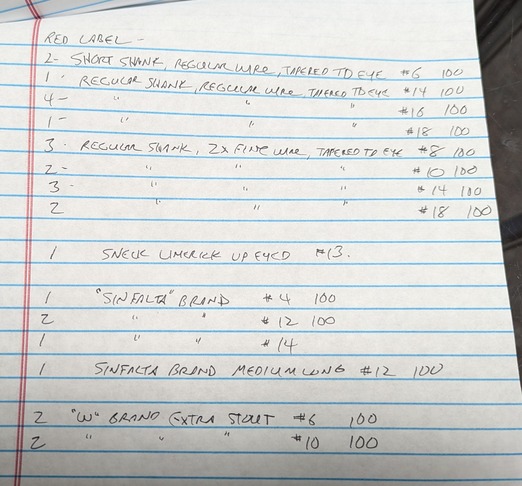 RED LABEL -
2- SHORT SHANK, REGULAR WIRE, TAPERED TO EYE #6 100
1 - REGULAR SHANK, REGULAR WIRE, TAPERED TO EYE #14 100
4 - " " " #16 100
1 - " " " #18 100
3 - REGULAR SHANK, 2X FINE WIRE, TAPERED TO EYE #8 100
2 - " " " #10 100
3 - " " " #14 100
2 " " " #18 100
1 SNECK LIMERICK UP EYED #13.
1 "SINFALTA" BRAND #4 100
2 " " #12 100
1 " " #14
1 SINFALTA BRAND MEDIUM LONG #12 100
2 "W" BRAND EXTRA STOUT #6 100
2 " " " #10 100